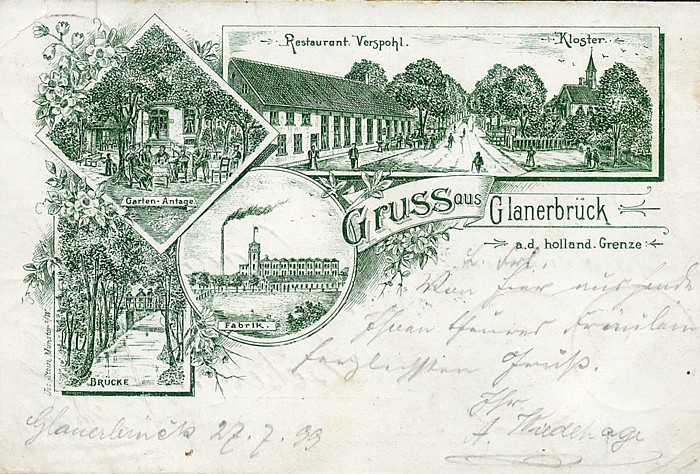 Restaurant Verspohl.
Kloster.
Garten-Anlage.
Gruss aus Glanerbrück
a.d. holland. Grenze
Fabrik.
BRÜCKE
Von hier aus sende
Ihnen theures Fräulein
herzlichsten Gruß.
Ihr
Glanerbrück 27.7.99